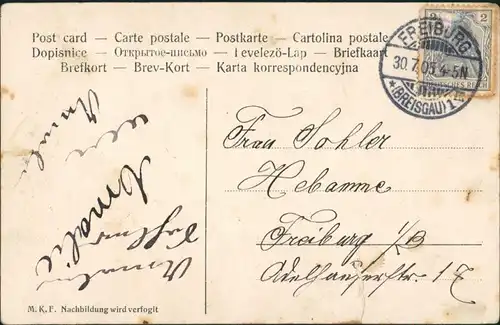 Post card — Carte postale — Postkarte — Cartolina postale
Dopisnice — Открытое-письмо — Levelező-Lap — Briefkaart
Brefkort — Brev-Kort — Karta korrespondencyjna
FREIBURG
30.7.05.4-5N
*(BREISGAU)1
2
Frau Sohler
Hebamme
Freiburg i/B
Adelhauserstr. 17
Amalie
Amalie
Amalie
M. K. F. Nachbildung wird verfogit